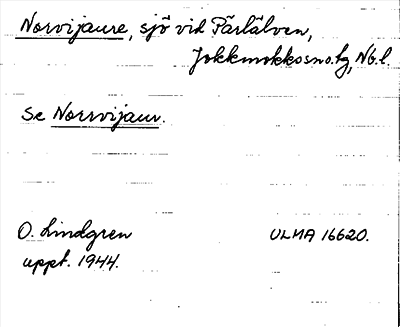 Norvijaure, sjö vid Pärlälven,
Jokkmokks sn o. lg, Nb. l.
Se Norrvijaur.
O. Lindgren
uppt. 1944.
ULMA 16620.